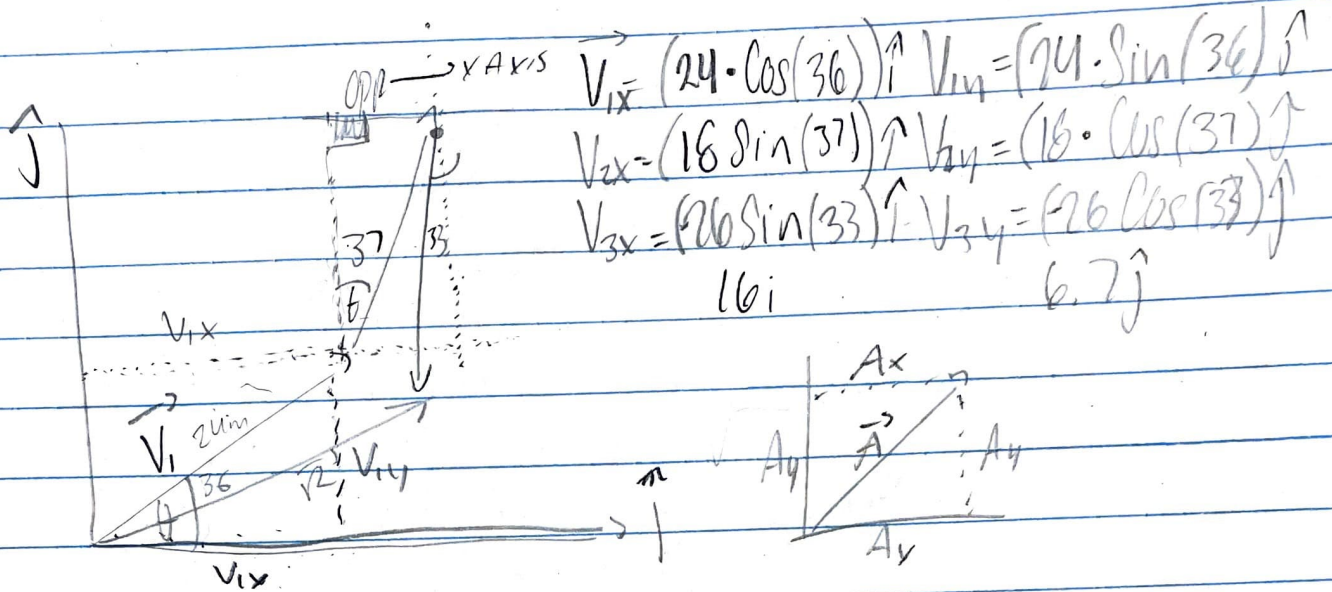 opp → x Axis
V⃗₁ₓ = (24·Cos(36))î V₁y = (24·Sin(36)ĵ
V₂ₓ = (18 Sin(37))î V₂y = (18·Cos(37)ĵ
V₃ₓ = (-26 Sin(33)î V₃y = (-26 Cos(33)ĵ
16i 6.7ĵ
ĵ
37 33
θ
V₁ₓ
V⃗₁ 24m
36
V₁y
î
V₁ₓ
Ax
Ay A⃗ Ay